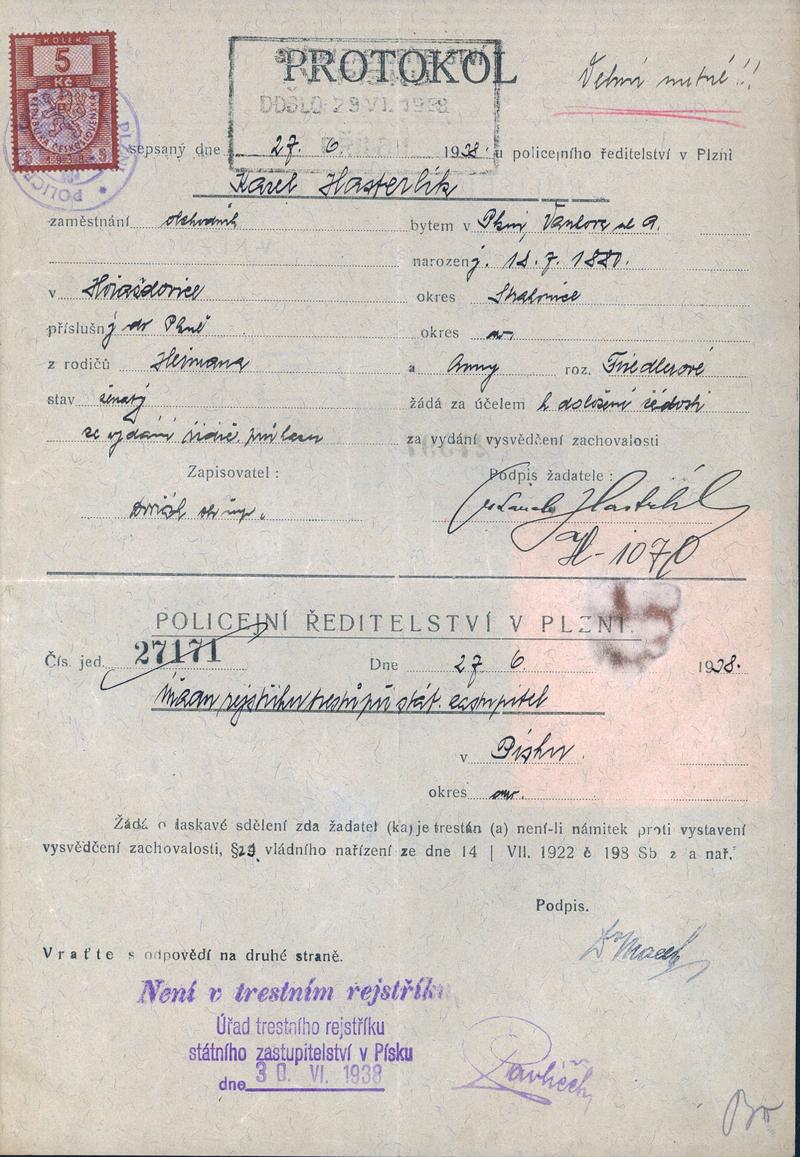 KOLEK
5
Kč
1938
PROTOKOL
DOŠLO 29 VI. 1938
Velmi nutné!!
sepsaný dne 27. 6. 1938. u policejního ředitelství v Plzni
Karel Hasterlík
zaměstnání obchodník bytem v Plzni,
narozený. 18. 7. 1880.
v Horažďovice okres Strakonice
příslušný do Plzně okres
z rodičů Heřmana a Anny roz. Fiedlerové
stav ženatý žádá za účelem k doložení žádosti
se vydání řidič. průkazu za vydání vysvědčení zachovalosti
Zapisovatel: Podpis žadatele:
H-1070
POLICEJNÍ ŘEDITELSTVÍ V PLZNI.
Čís. jed. 27171 Dne 27 6. 1938.
Úřadu rejstříku trestů při stát. zastupitel
v Písku.
okres
Žádá o laskavé sdělení zda žadatel (ka) je trestán (a) není-li námitek proti vystavení
vysvědčení zachovalosti, § vládního nařízení ze dne 14 | VII. 1922 č 198 Sb z a nař.
Podpis.
Vraťte s odpovědí na druhé straně.
Není v trestním rejstříku
Úřad trestního rejstříku
státního zastupitelství v Písku
dne 30. VI. 1938